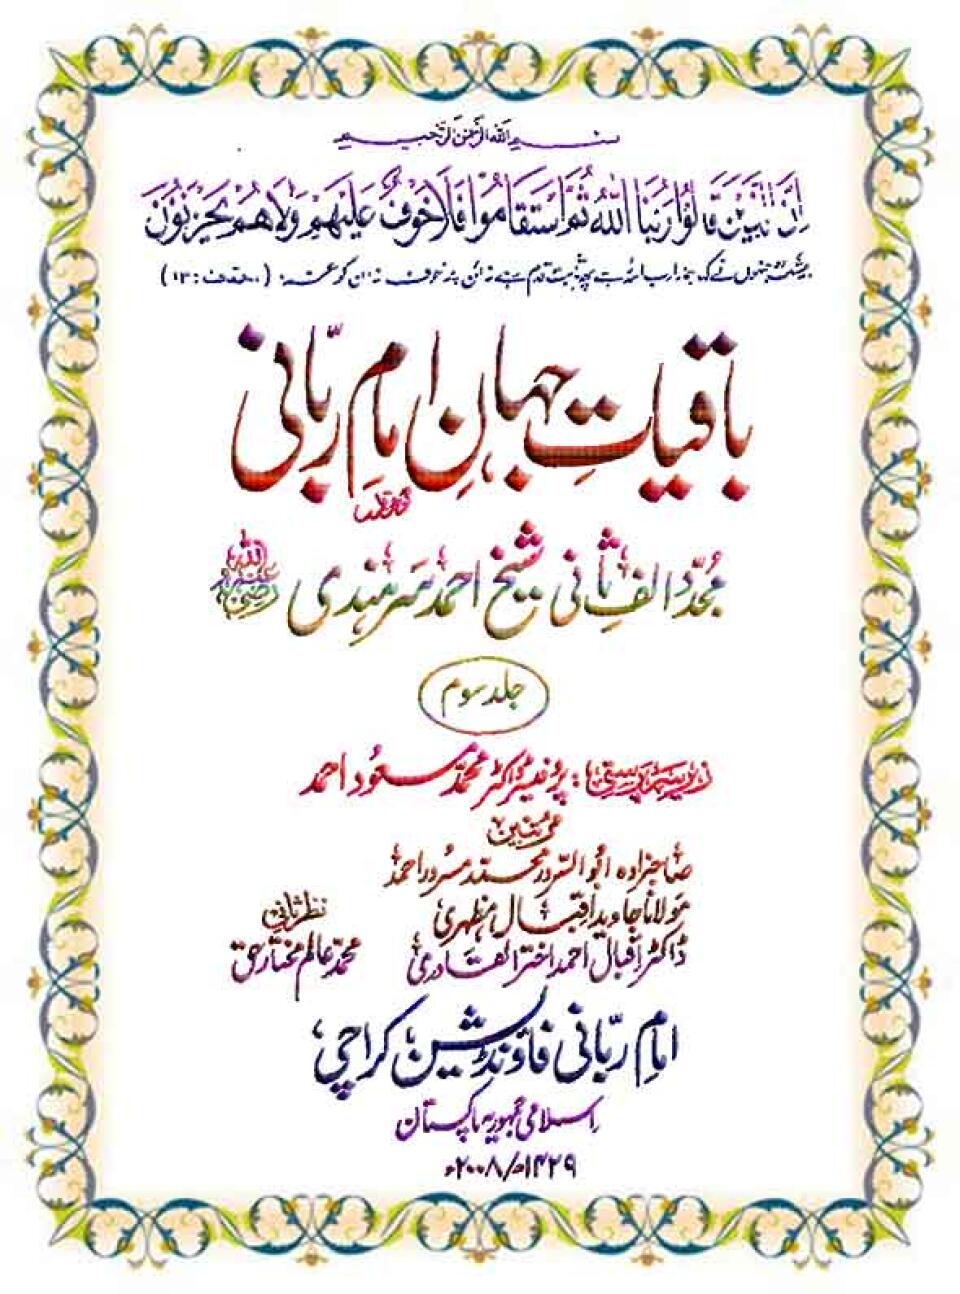 بسم الله الرحمن الرحيم
اِنَّ الَّذِيْنَ قَالُوْا رَبُّنَا اللّٰهُ ثُمَّ اسْتَقَامُوْا فَلَا خَوْفٌ عَلَيْهِمْ وَلَا هُمْ يَحْزَنُوْنَ
جنہوں نے ہمارا رب اللہ ہے پھر ثابت قدم رہے نہ ان پر خوف نہ ان کو غم (احقاف: ۱۳)
باقیاتِ جہانِ امامِ ربّانی
مجدّد الفِ ثانی شیخ احمد سرہندی
جلد سوم
زیر سرپرستی: پروفیسر ڈاکٹر محمّد مسعود احمد
مرتبین
صاحبزادہ ابوالسرور محمد مسرور احمد
مولانا جاوید اقبال مظہری
نظر ثانی
ڈاکٹر اقبال احمد اختر القادری
محمد عالم مختار حق
امامِ ربّانی فاؤنڈیشن، کراچی
اسلامی جمہوریہ پاکستان
۱۴۲۹ھ/۲۰۰۸ء